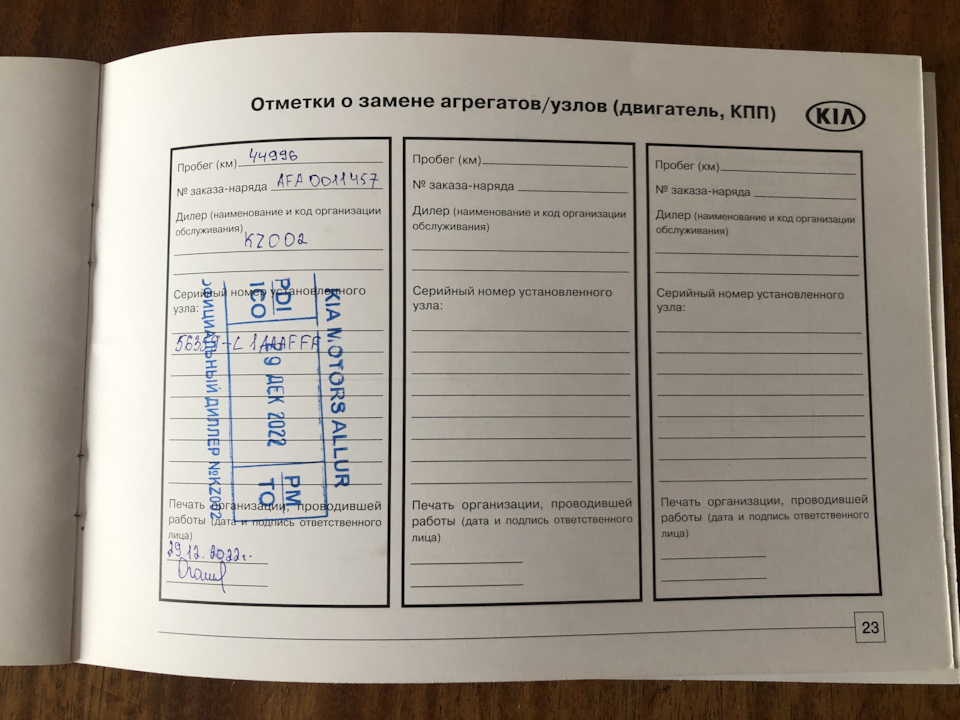 Отметки о замене агрегатов/узлов (двигатель, КПП)
KIA
Пробег (км) 44996
№ заказа-наряда AFA0011457
Дилер (наименование и код организации
обслуживания)
KZ002
Серийный номер установленного
узла:
KIA MOTORS ALLUR
PDI
ICO
29 ДЕК 2022
PM
ТО
ОФИЦИАЛЬНЫЙ ДИЛЛЕР №KZ002
Печать организации, проводившей
работы (дата и подпись ответственного
лица)
29.12.2022г.
Пробег (км)
№ заказа-наряда
Дилер (наименование и код организации
обслуживания)
Серийный номер установленного
узла:
Печать организации, проводившей
работы (дата и подпись ответственного
лица)
Пробег (км)
№ заказа-наряда
Дилер (наименование и код организации
обслуживания)
Серийный номер установленного
узла:
Печать организации, проводившей
работы (дата и подпись ответственного
лица)
23